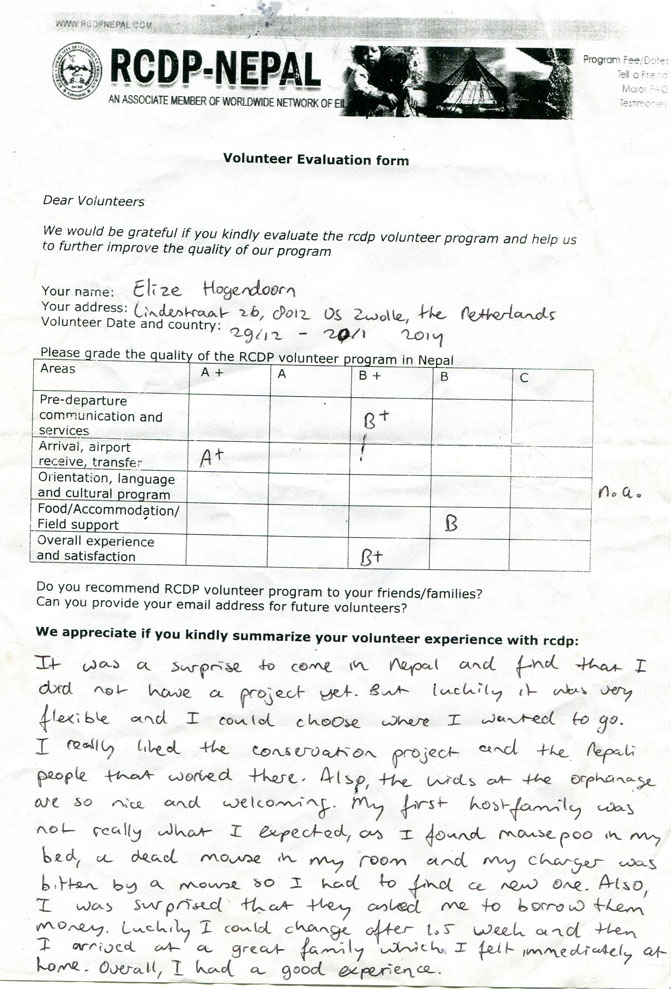 WWW.RCDPNEPAL.COM
RCDP-NEPAL
AN ASSOCIATE MEMBER OF WORLDWIDE NETWORK OF EIL
Program Fee/Dates
Tell a Friend
Major FAQ
Testimonies
Volunteer Evaluation form
Dear Volunteers
We would be grateful if you kindly evaluate the rcdp volunteer program and help us
to further improve the quality of our program
Your name: Elize Hogendoorn
Your address: Lindestraat 26, 8012 US Zwolle, the Netherlands
Volunteer Date and country: 29/12 - 20/1 2014
Please grade the quality of the RCDP volunteer program in Nepal
Areas A + A B + B C
Pre-departure
communication and B+
services
Arrival, airport
receive, transfer A+ !
Orientation, language
and cultural program n.a.
Food/Accommodation/
Field support B
Overall experience
and satisfaction B+
Do you recommend RCDP volunteer program to your friends/families?
Can you provide your email address for future volunteers?
We appreciate if you kindly summarize your volunteer experience with rcdp:
It was a surprise to come in Nepal and find that I
did not have a project yet. But luckily it was very
flexible and I could choose where I wanted to go.
I really liked the conservation project and the Nepali
people that worked there. Also, the kids at the orphanage
are so nice and welcoming. My first hostfamily was
not really what I expected, as I found mouse poo in my
bed, a dead mouse in my room and my charger was
bitten by a mouse so I had to find a new one. Also,
I was surprised that they asked me to borrow them
money. Luckily I could change after 1.5 week and then
I arrived at a great family which I felt immediately at
home. Overall, I had a good experience.